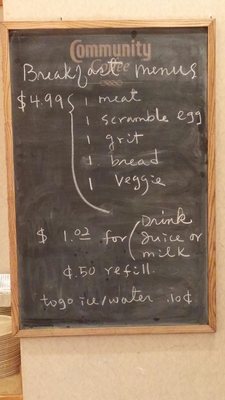 Community
Coffee
Breakfast menus
$4.99 1 meat
1 scramble egg
1 grit
1 bread
1 veggie
$ 1.02 for Drink
Juice or
milk
¢.50 refill.
togo ice/water .10¢